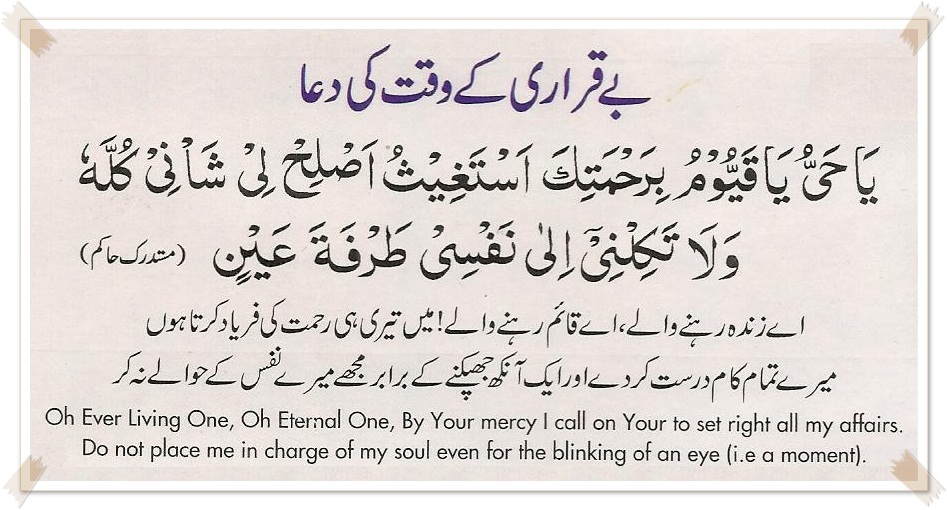 بے قراری کے وقت کی دعا
یَا حَیُّ یَا قَیُّوْمُ بِرَحْمَتِكَ اَسْتَغِیْثُ اَصْلِحْ لِیْ شَاْنِیْ كُلَّهٗ
وَلَا تَكِلْنِیْۤ اِلٰی نَفْسِیْ طَرْفَةَ عَیْنٍ (مستدرک حاکم)
اے زندہ رہنے والے، اے قائم رہنے والے! میں تیری ہی رحمت کی فریاد کرتا ہوں
میرے تمام کام درست کر دے اور ایک آنکھ جھپکنے کے برابر مجھے میرے نفس کے حوالے نہ کر
Oh Ever Living One, Oh Eternal One, By Your mercy I call on Your to set right all my affairs.
Do not place me in charge of my soul even for the blinking of an eye (i.e a moment).